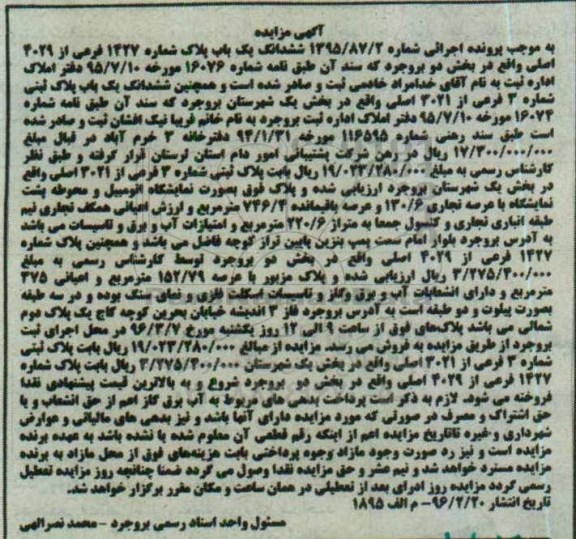 آگهی مزایده
به موجب پرونده اجرائی شماره ۱۳۹۵/۸۷/۲ ششدانگ یک باب پلاک شماره ۱۴۲۷ فرعی از ۴۰۲۹
اصلی واقع در بخش دو بروجرد که سند آن طبق نامه شماره ۱۶۰۷۶ مورخه ۹۵/۷/۱۰ دفتر املاک
اداره ثبت به نام آقای خدامراد خادمی ثبت و صادر شده است و همچنین ششدانگ یک باب پلاک ثبتی
شماره ۳ فرعی از ۳۰۲۱ اصلی واقع در بخش یک شهرستان بروجرد که سند آن طبق نامه شماره
۱۶۰۷۴ مورخه ۹۵/۷/۱۰ دفتر املاک اداره ثبت بروجرد به نام خانم فریبا نیک افشان ثبت و صادر شده
است طبق سند رهنی شماره ۱۱۶۵۹۵ مورخه ۹۴/۱/۳۱ دفترخانه ۳ خرم آباد در قبال مبلغ
۱۷/۳۰۰/۰۰۰/۰۰۰ ریال در رهن شرکت پشتیبانی امور دام استان لرستان قرار گرفته و طبق نظر
کارشناس رسمی به مبلغ ۱۹/۰۲۳/۲۸۰/۰۰۰ ریال بابت پلاک ثبتی شماره ۳ فرعی از ۳۰۲۱ اصلی واقع
در بخش یک شهرستان بروجرد ارزیابی شده و پلاک فوق بصورت نمایشگاه اتومبیل و محوطه پشت
نمایشگاه با عرصه تجاری ۱۳۰/۶ و عرصه باقیمانده ۷۴۶/۴ مترمربع و ارزش اعیانی همکف تجاری نیم
طبقه انباری تجاری و کنسول جمعا به متراژ ۲۲۰/۶ مترمربع و امتیازات آب و برق و تاسیسات می باشد
به آدرس بروجرد بلوار امام سمت پمپ بنزین پایین تراز کوچه فاضل می باشد و همچنین پلاک شماره
۱۴۲۷ فرعی از ۴۰۲۹ اصلی واقع در بخش دو بروجرد توسط کارشناس رسمی به مبلغ
۳/۲۷۵/۴۰۰/۰۰۰ ریال ارزیابی شده و پلاک مزبور با عرصه ۱۵۲/۷۹ مترمربع و اعیانی ۳۷۵
مترمربع و دارای انشعابات آب و برق وگاز و تاسیسات اسکلت فلزی و نمای سنگ بوده و در سه طبقه
بصورت پیلوت و دو طبقه است به آدرس بروجرد فاز ۳ اندیشه خیابان بحرین کوچه کاج یک پلاک دوم
شمالی می باشد پلاک‌های فوق از ساعت ۹ الی ۱۲ روز یکشنبه مورخ ۹۶/۳/۷ در محل اجرای ثبت
بروجرد از طریق مزایده به فروش می رسد. مزایده از مبالغ ۱۹/۰۲۳/۲۸۰/۰۰۰ ریال بابت پلاک ثبتی
شماره ۳ فرعی از ۳۰۲۱ اصلی واقع در بخش یک شهرستان ۳/۲۷۵/۴۰۰/۰۰۰ ریال بابت پلاک شماره
۱۴۲۷ فرعی از ۴۰۲۹ اصلی واقع در بخش دو بروجرد شروع و به بالاترین قیمت پیشنهادی نقدا
فروخته می شود. لازم به ذکر است پرداخت بدهی های مربوط به آب برق گاز اعم از حق انشعاب و یا
حق اشتراک و مصرف در صورتی که مورد مزایده دارای آنها باشد و نیز بدهی های مالیاتی و عوارض
شهرداری و غیره تاتاریخ مزایده اعم از اینکه رقم قطعی آن معلوم شده یا نشده باشد به عهده برنده
مزایده است و نیز رد صورت وجود مازاد وجوه پرداختی بابت هزینه‌های فوق از محل مازاد به برنده
مزایده مسترد خواهد شد و نیم عشر و حق مزایده نقدا وصول می گردد ضمنا چنانچه روز مزایده تعطیل
رسمی گردد مزایده روز ادرای بعد از تعطیلی در همان ساعت و مکان مقرر برگزار خواهد شد.
تاریخ انتشار ۹۶/۲/۲۰- م الف ۱۸۹۵
مسئول واحد اسناد رسمی بروجرد - محمد نصرالهی